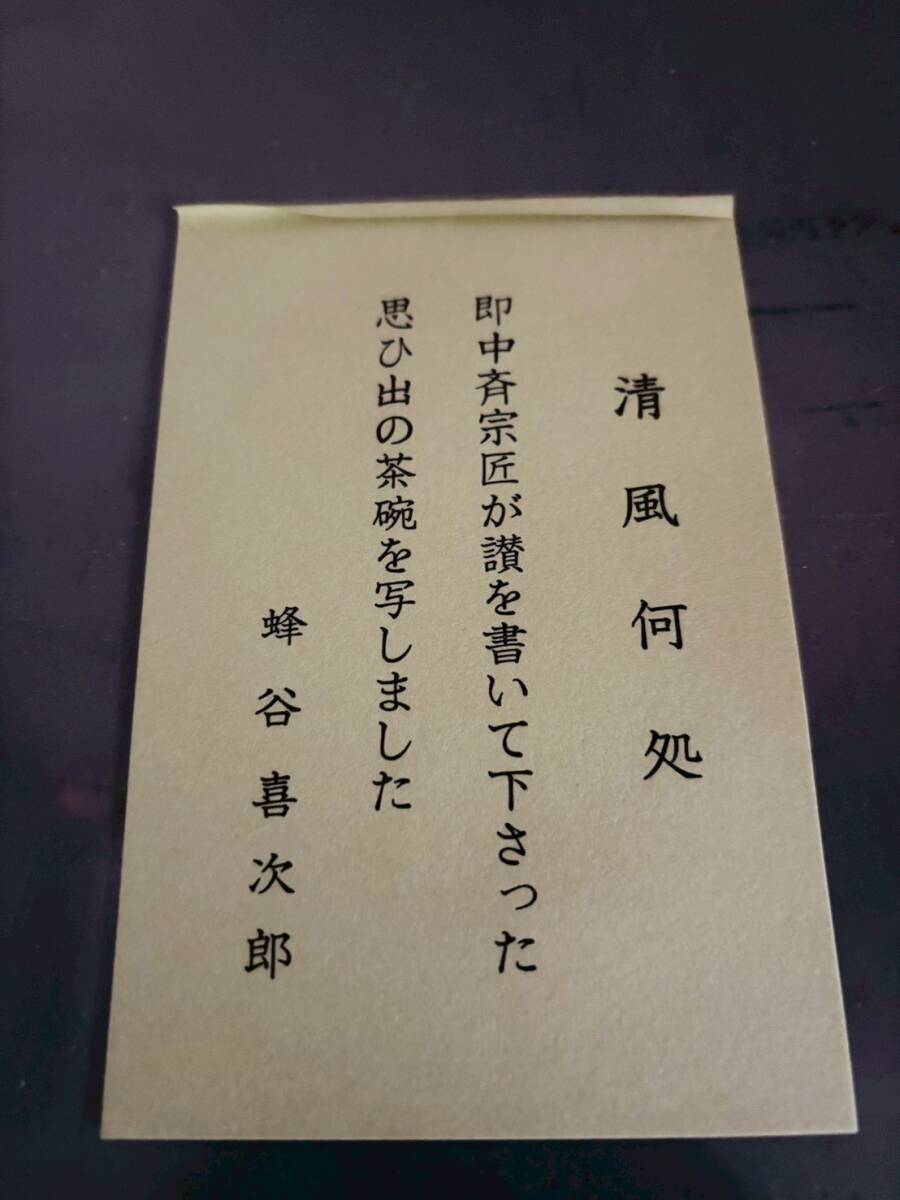 清風何処
即中斉宗匠が讃を書いて下さった
思ひ出の茶碗を写しました
蜂谷喜次郎